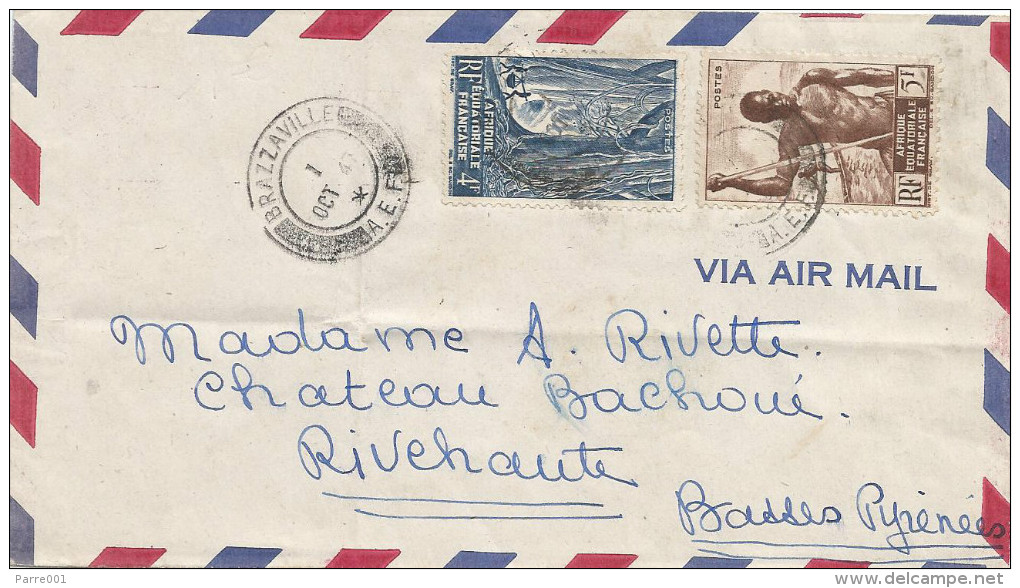 BRAZZAVILLE
1
OCT 4
*
A.E.F.
RF AFRIQUE ÉQUATORIALE FRANÇAISE 4F
POSTES
POSTES
5F
AFRIQUE ÉQUATORIALE FRANÇAISE
RF
A.E.F.
VIA AIR MAIL
Madame A. Rivette.
Chateau Bachoué.
Rivehaute
Basses Pyrénées
Parre001
delcampe.net